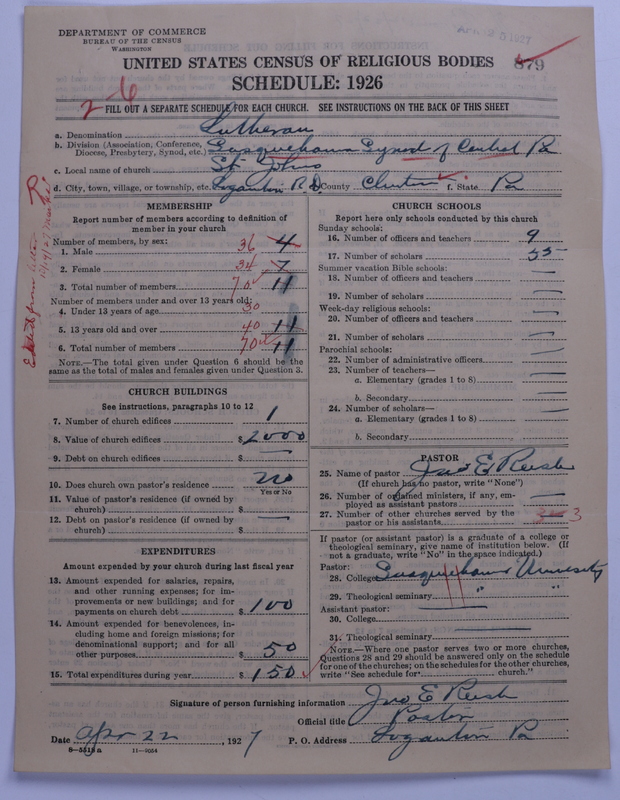 DEPARTMENT OF COMMERCE
BUREAU OF THE CENSUS
WASHINGTON
UNITED STATES CENSUS OF RELIGIOUS BODIES
879
SCHEDULE: 1926
2-6
FILL OUT A SEPARATE SCHEDULE FOR EACH CHURCH. SEE INSTRUCTIONS ON THE BACK OF THIS SHEET
a. Denomination Lutheran
b. Division (Association, Conference, Diocese, Presbytery, Synod, etc.) Susquehanna Synod of Central Pa
c. Local name of church St Johns
d. City, town, village, or township, etc. Loganton R.D. County Clinton f. State Pa
MEMBERSHIP
Report number of members according to definition of
member in your church
Number of members, by sex:
1. Male 36 4
2. Female 34 7
3. Total number of members 70 11
Number of members under and over 13 years old:
4. Under 13 years of age 30
5. 13 years old and over 40 11
6. Total number of members 70 11
NOTE.—The total given under Question 6 should be the
same as the total of males and females given under Question 3.
CHURCH BUILDINGS
See instructions, paragraphs 10 to 12
7. Number of church edifices 1
8. Value of church edifices $2000
9. Debt on church edifices $ —
10. Does church own pastor's residence no
Yes or No
11. Value of pastor's residence (if owned by
church) $
12. Debt on pastor's residence (if owned by
church) $ —
EXPENDITURES
Amount expended by your church during last fiscal year
13. Amount expended for salaries, repairs,
and other running expenses; for im-
provements or new buildings; and for
payments on church debt $100
14. Amount expended for benevolences, in-
cluding home and foreign missions; for
denominational support; and for all
other purposes $50
15. Total expenditures during year $150
CHURCH SCHOOLS
Report here only schools conducted by this church
Sunday schools:
16. Number of officers and teachers 9
17. Number of scholars 55
Summer vacation Bible schools:
18. Number of officers and teachers —
19. Number of scholars —
Week-day religious schools:
20. Number of officers and teachers —
21. Number of scholars —
Parochial schools:
22. Number of administrative officers —
23. Number of teachers—
a. Elementary (grades 1 to 8) —
b. Secondary —
24. Number of scholars—
a. Elementary (grades 1 to 8) —
b. Secondary —
PASTOR
25. Name of pastor Jno E Reish
(If church has no pastor, write "None")
26. Number of ordained ministers, if any, em-
ployed as assistant pastors —
27. Number of other churches served by the
pastor or his assistants 3
If pastor (or assistant pastor) is a graduate of a college or
theological seminary, give name of institution below. (If
not a graduate, write "No" in the space indicated.)
Pastor:
28. College Susquehanna University
29. Theological seminary " "
Assistant pastor:
30. College —
31. Theological seminary —
NOTE.—Where one pastor serves two or more churches,
Questions 28 and 29 should be answered only on the schedule
for one of the churches; on the schedules for the other churches,
write "See schedule for church."
Signature of person furnishing information Jno E Reish
Official title Pastor
Date Apr 22, 1927 P. O. Address Loganton Pa
8-5518a 11-9054